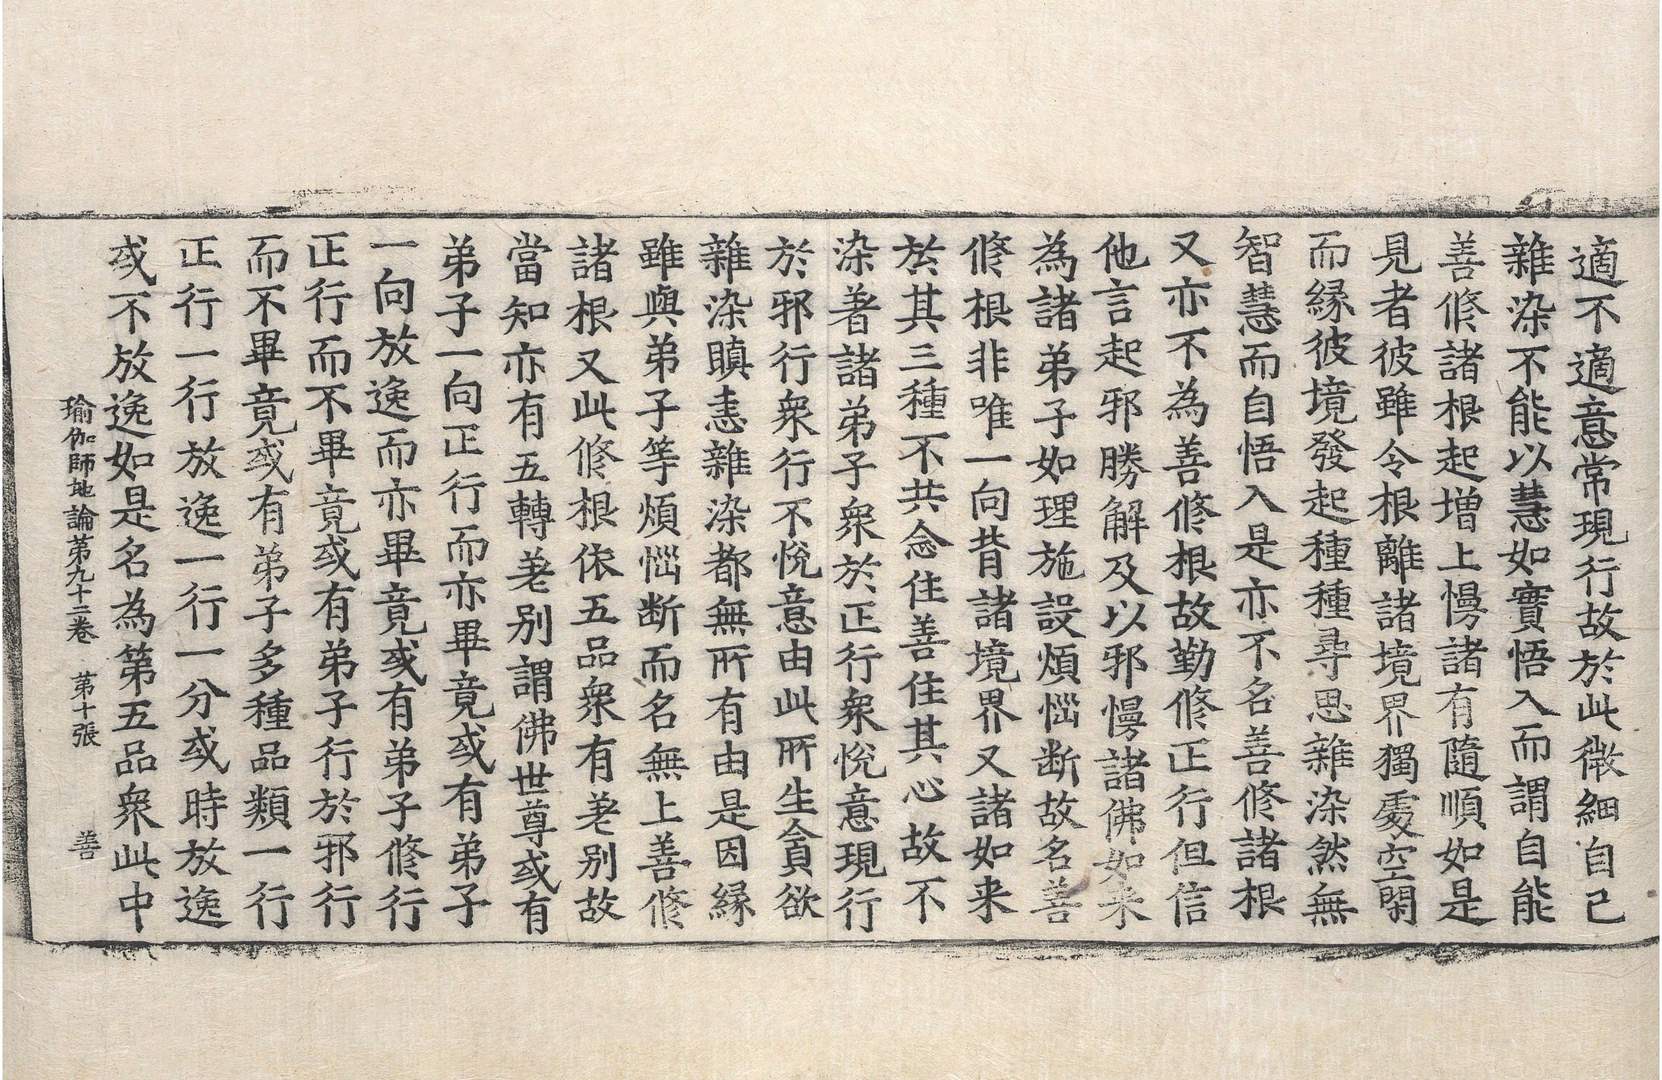 適不適意常現行故於此微細自己
雜染不能以慧如實悟入而謂自能
善修諸根起增上慢諸有隨順如是
見者彼雖令根離諸境界獨處空閑
而緣彼境發起種種尋思雜染然無
智慧而自悟入是亦不名善修諸根
又亦不為善修根故勤修正行但信
他言起邪勝解及以邪慢諸佛如来
為諸弟子如理施設煩惱断故名善
修根非唯一向昔諸境界又諸如来
於其三種不共念住善住其心故不
染著諸弟子衆於正行衆悅意現行
於邪行衆行不悅意由此所生貪欲
雜染瞋恚雜染都無所有由是因緣
雖與弟子等煩惱断而名無上善修
諸根又此修根依五品衆有差別故
當知亦有五轉差別謂佛世尊或有
弟子一向正行而亦畢竟或有弟子
一向放逸而亦畢竟或有弟子修行
正行而不畢竟或有弟子行於邪行
而不畢竟或有弟子多種品類一行
正行一行放逸一行一分或時放逸
或不放逸如是名為第五品衆此中
瑜伽師地論第九十二卷 第十張 善